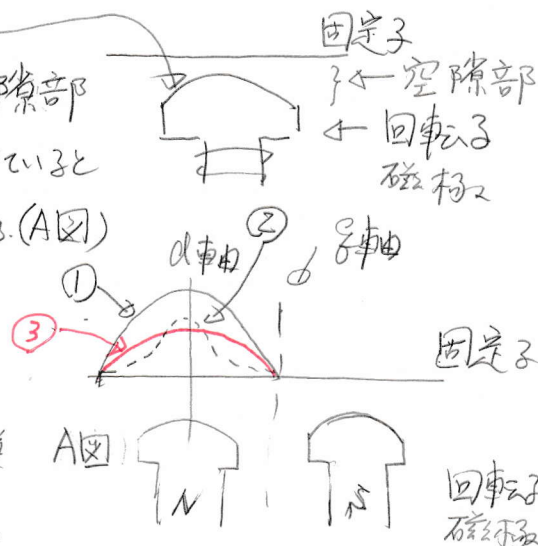 固定子
隙部
空隙部
回転子
磁極
ていると
(A図)
②
d軸
q軸
①
③
固定子
A図
N
S
回転子
磁極